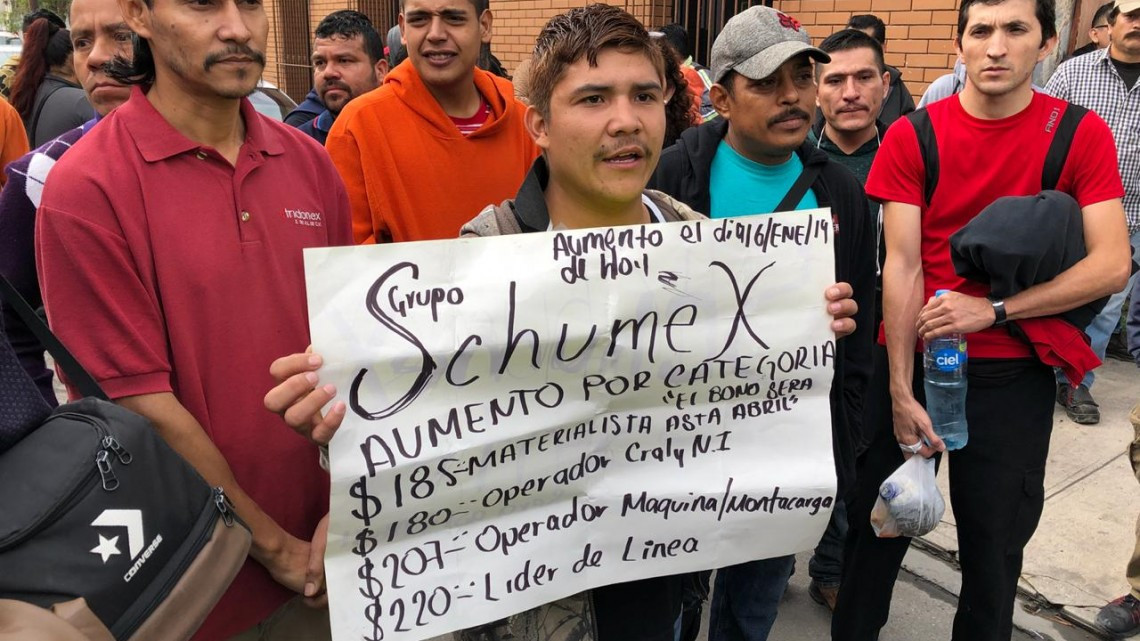 Aumento el dia 16/ENE/19
de Hoi!
Grupo
SchumeX
AUMENTO POR CATEGORIA
"El BONO SERA
$185=MATERIALISTA ASTA ABRIL"
$180=Operador Cral y N.I
$207=Operador Maquina/Montacarga
$220=Lider de Linea
tridonex
CONVERSE
ciel
AND1